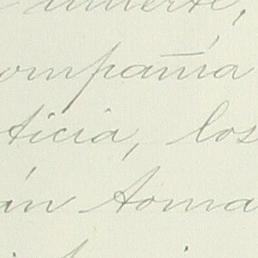 muerte,
ompañia
ticia, los
án toma